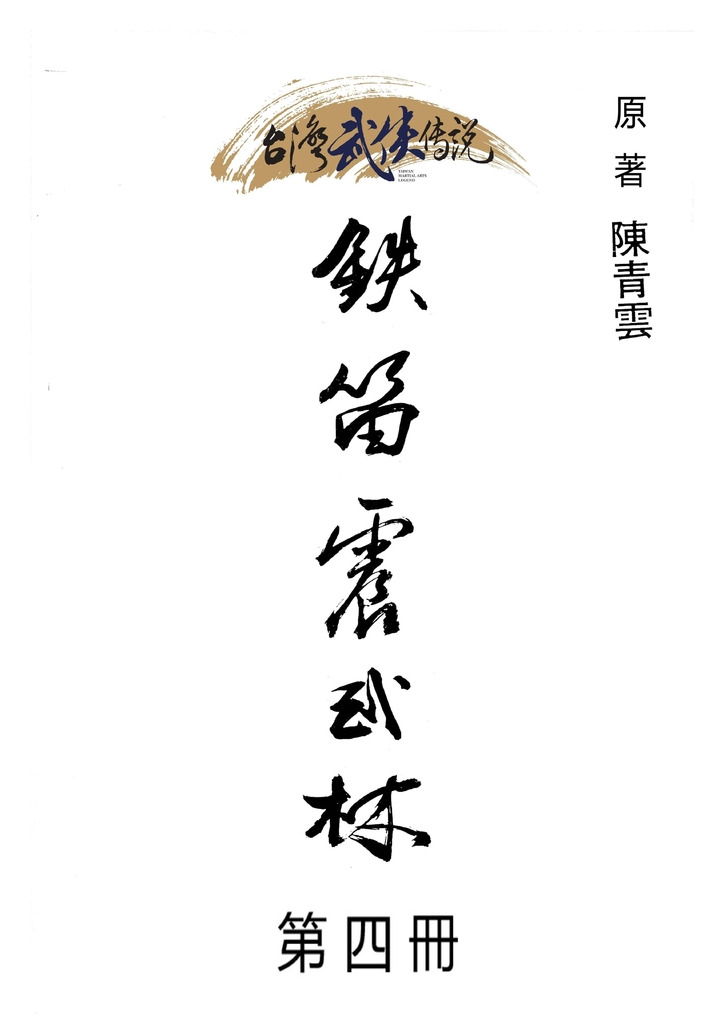 台灣武俠傳説
TAIWAN
MARTIAL ARTS
LEGEND
原著 陳青雲
鉄笛震武林
第四冊